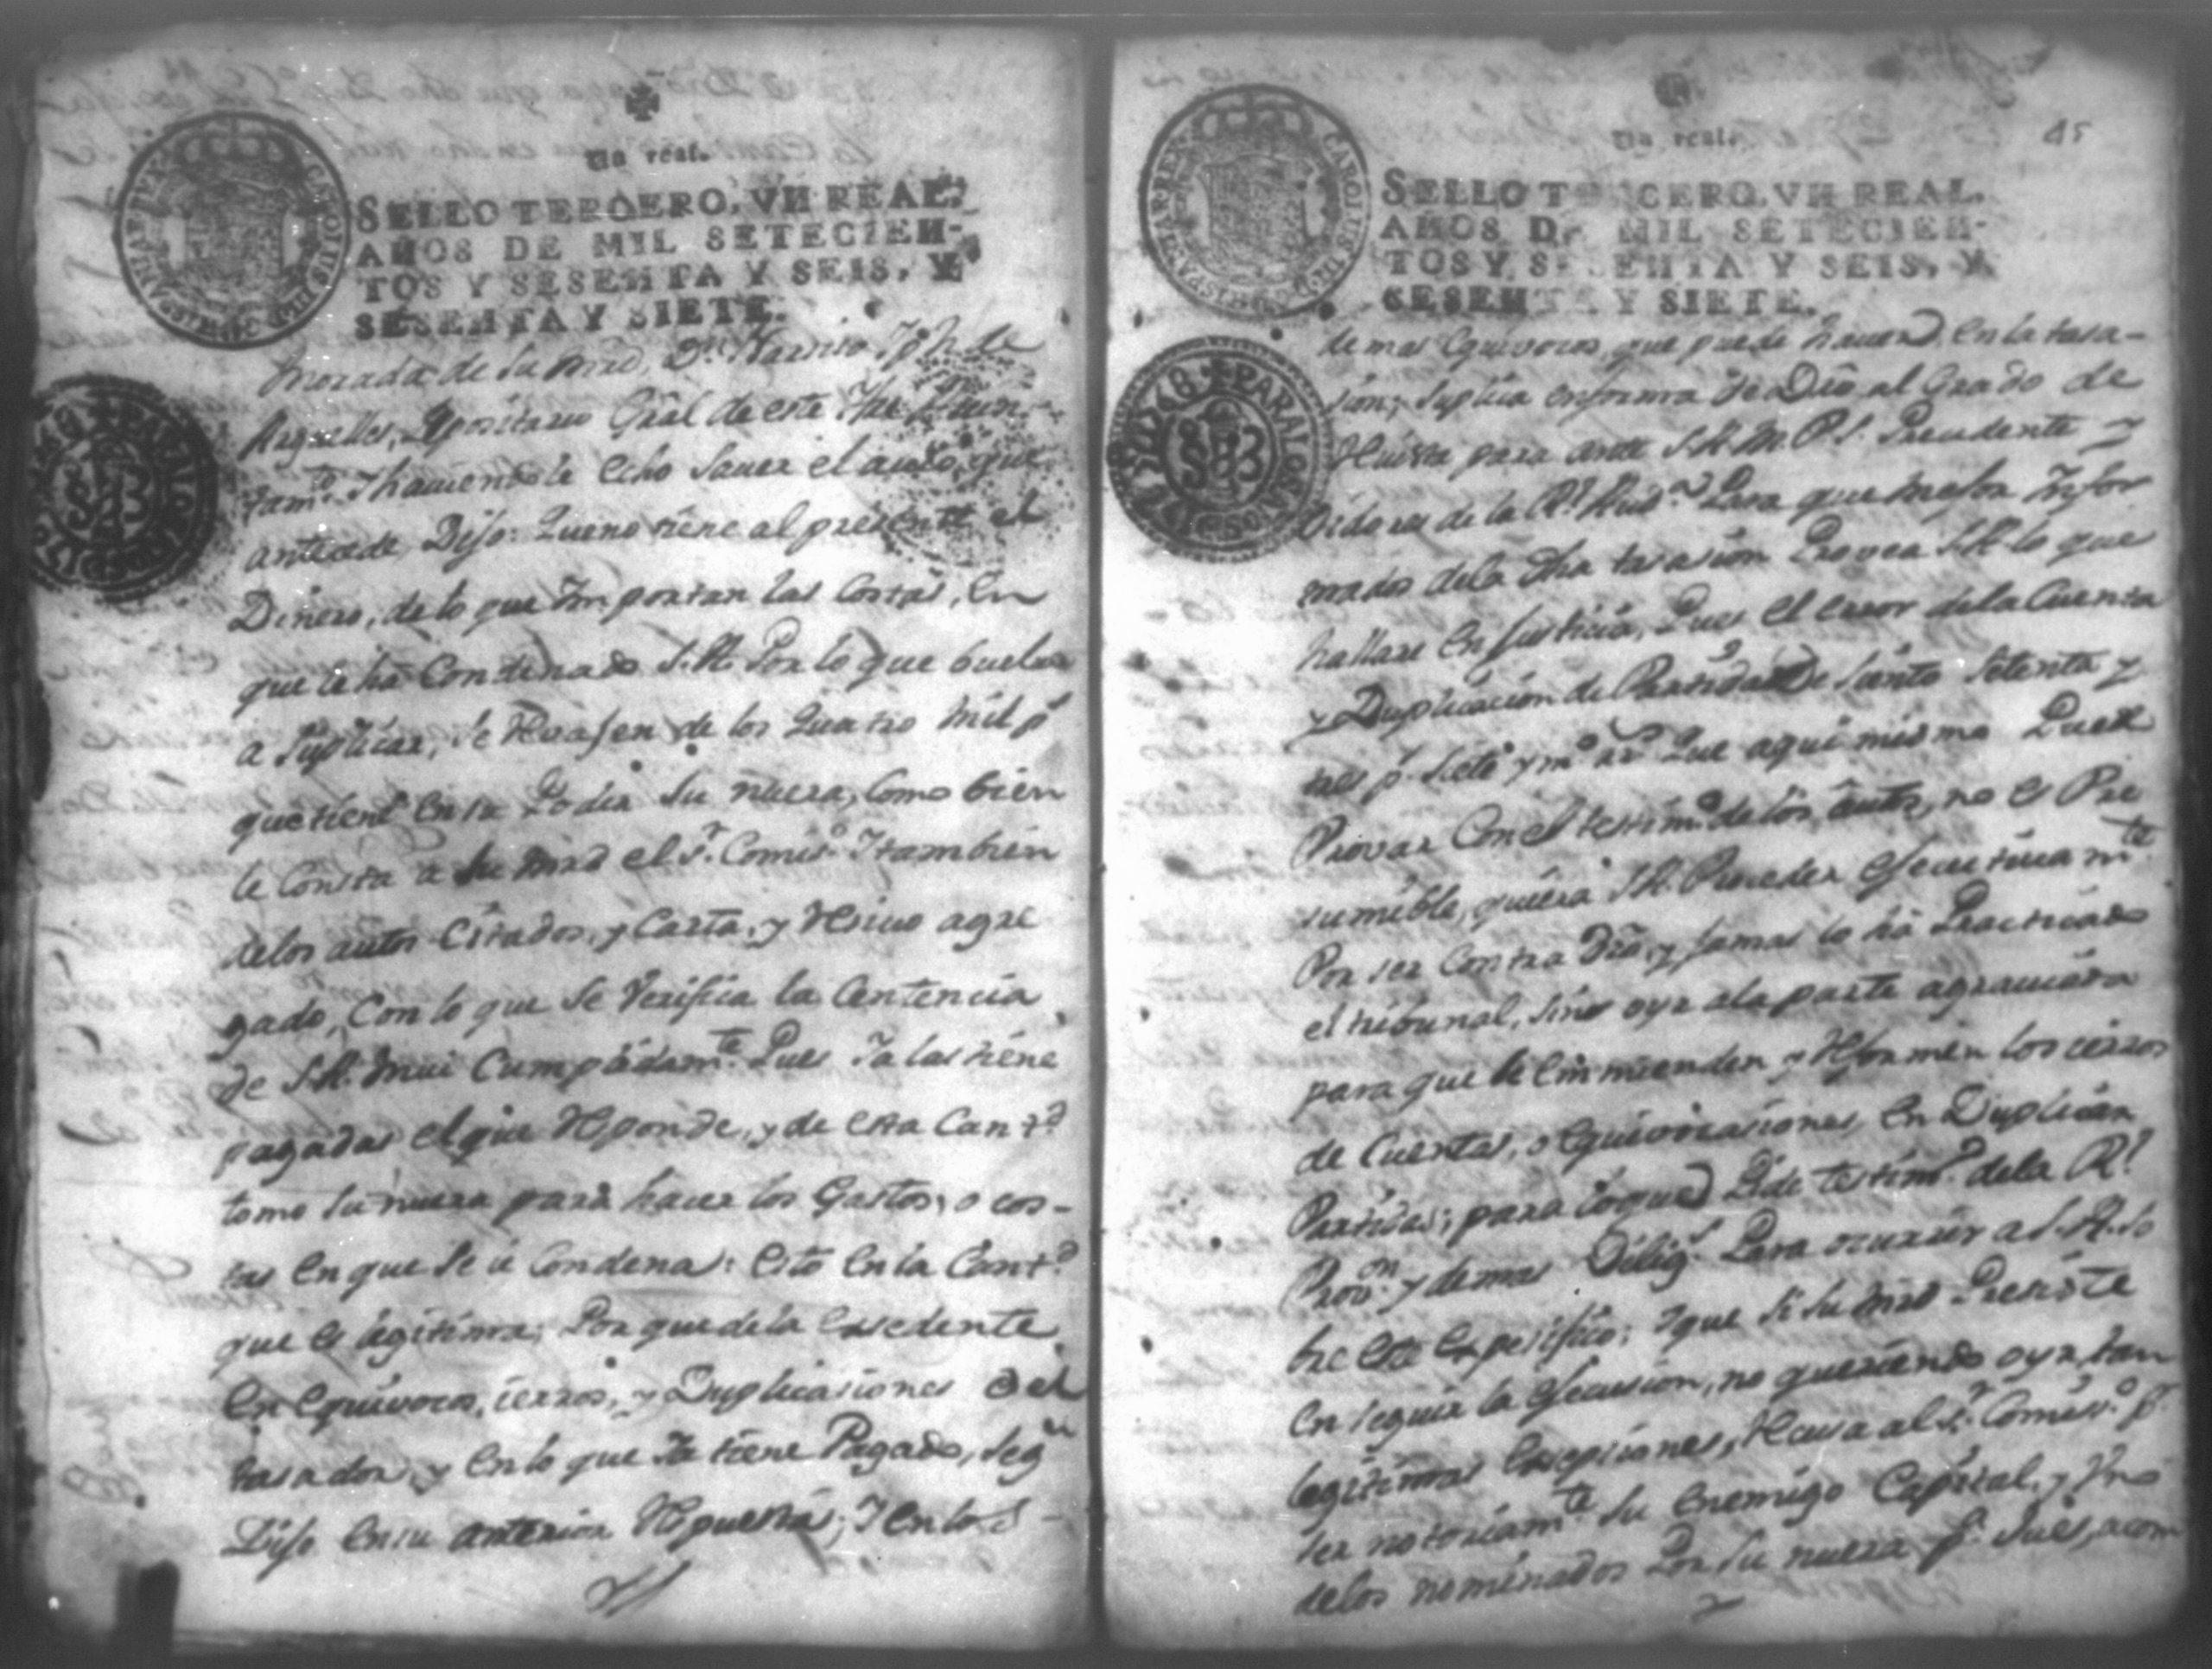 Un real.
SELLO TERCERO, VN REAL,
AÑOS DE MIL SETECIEN-
TOS Y SESENTA Y SEIS, Y
SESENTA Y SIETE.
morada de su mrd, Dn. Narsiso Jph de
Arguelles, Depositario Gral de este Ille
tamto. Y haviendole echo saver el auto, que
antecede Dijo: Que no tiene al presente el
Dinero, de lo que Importan las Costas, en
que le ha Condenado S.A. Por lo que buelve
a suplicar, se de los Quatro mil ps
que tiene en su Poder su nuera, como bien
le Consta a su mrd el Sr. Comiso. Y tambien
delos autos Citados, y Carta, y resivo agre
gado, Con lo que se Verifica la Centencia
de S.A. mui Cumplidamte. Pues Ya las tiene
pagadas el que responde, y de esta Cantd.
tomo su nuera para hacer los Gastos, o cos-
tas en que se le Condena: esto en la Cantd.
que es legitima; Porque dela exsedente
en equivocos, ierros, y Duplicasiones del
tasador, y en lo que Ya tiene Pagado, segn
Dijo en su anterior respuesta; Y en los
45
Un real.
SELLO TERCERO. VN REAL.
AÑOS DE MIL SETECIEN-
TOS Y SESENTA Y SEIS, Y
SESENTA Y SIETE.
demas equivocos, que puede haver en la tasa-
sion; suplica en forma de Dro al Grado de
revista para ante S.A.M.P.S. Precidente y
Oidores de la Rl. Auda. Para que mejor Infor
mados dela dha tasasion Provea S.A. lo que
hallare en Justicia, Pues el error dela Cuenta
y Duplicacion de Partidas De siento setenta y
tres ps. siete y mo rrs. Que aqui mismo Puede
Provar Con el testimo. de los autos, no es Pre
sumible, quiera S.A. Proceder executivamte.
Por ser Contra Dro, y jamas lo ha Practicado
el tribunal, sino oyr ala parte agraviada
para que se enmienden y reformen los ierros
de Cuentas, o equivocasiones en Duplicar
Partidas; para loque Pide testimo. dela Rl.
Provon. y demas Diligs. Para ocurrir a S.A. so
bre este expesifico: Y que si su mrd Presiste
en seguir la execusion, no queriendo oyr tan
legitimas exepsiones, recusa al Sr. Comiso. pr.
ser notoriamte su enemigo Capital, y Uno
delos nominados Por su nuera pr. Jues, acom